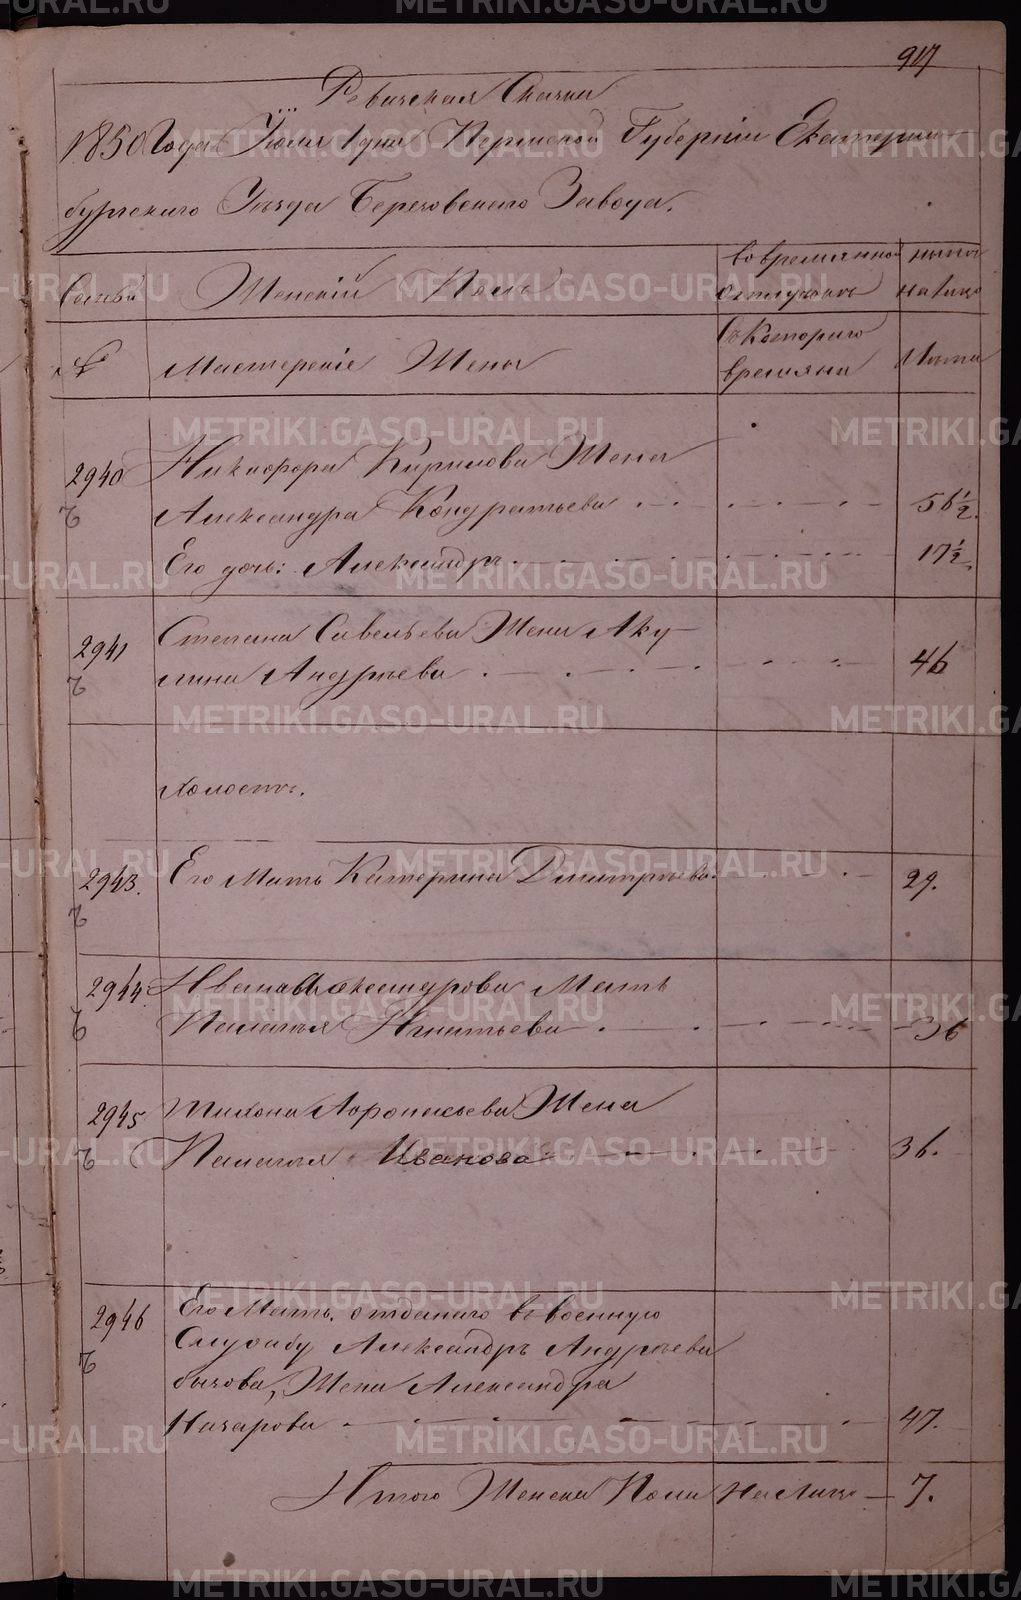 917
Ревизская Сказка
1850 Года Июля 1 дня Пермской Губернии Екатерин
бургскаго Уезда Березовскаго Завода.
Семьи Женский Полъ во временной отлучке ныне на лицо
№ Мастерские Жены Съ котораго времяни Лета
2940 Никифора Кирилова Жена
Александра Кондратьева 56 1/2.
Его дочь: Александра 17 1/2.
2941 Степана Савельева Жена Аку
лина Андреева 46
Холостой.
2943. Его Мать Катерина Дмитрева 29.
2944 Ивана Александрова Мать
Палагея Игнатьева 36
2945 Тихона Жена
Палагея Иванова 36.
2946 Его Мать, отданаго въ военную
Службу Александръ Андреева
Быкова, Жена Александра
Назарова 47.
Итого Женска Пола На Лицо — 7.
METRIKI.GASO-URAL.RU